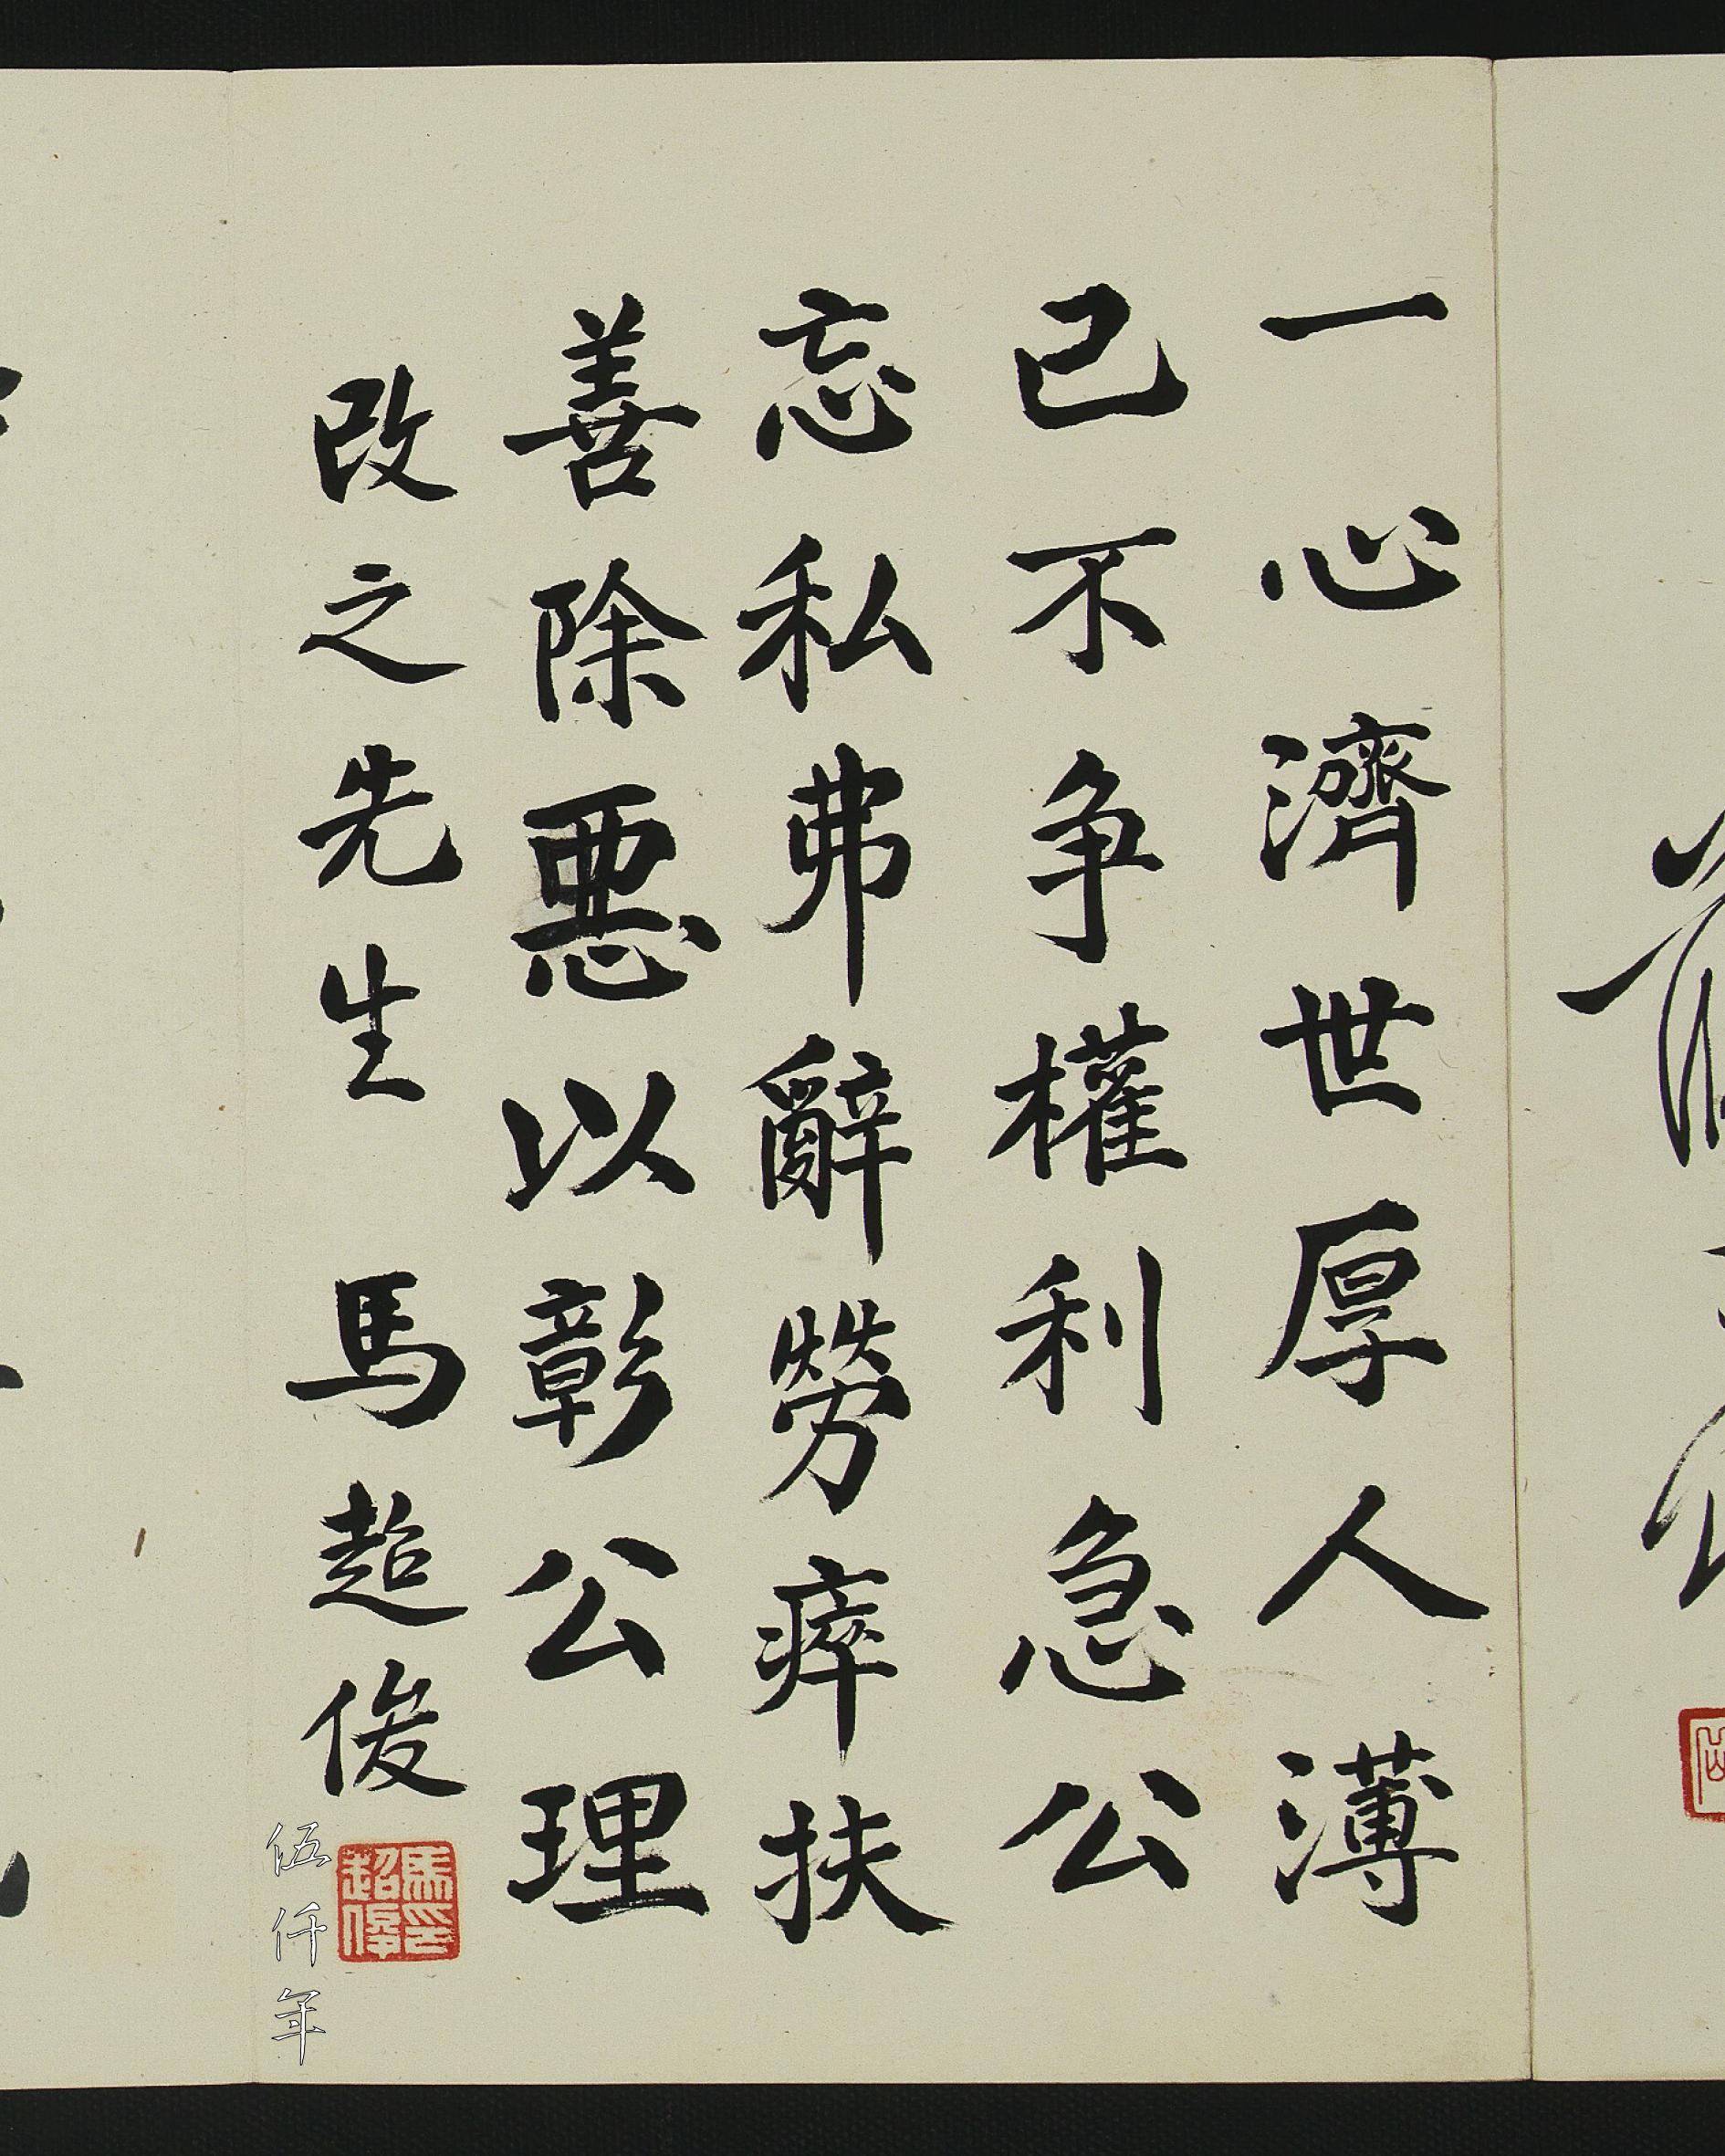 一心濟世厚人薄
己不争權利急公
忘私弗辭勞瘁扶
善除惡以彰公理
改之先生 馬超俊
馬超俊印
伍仟年